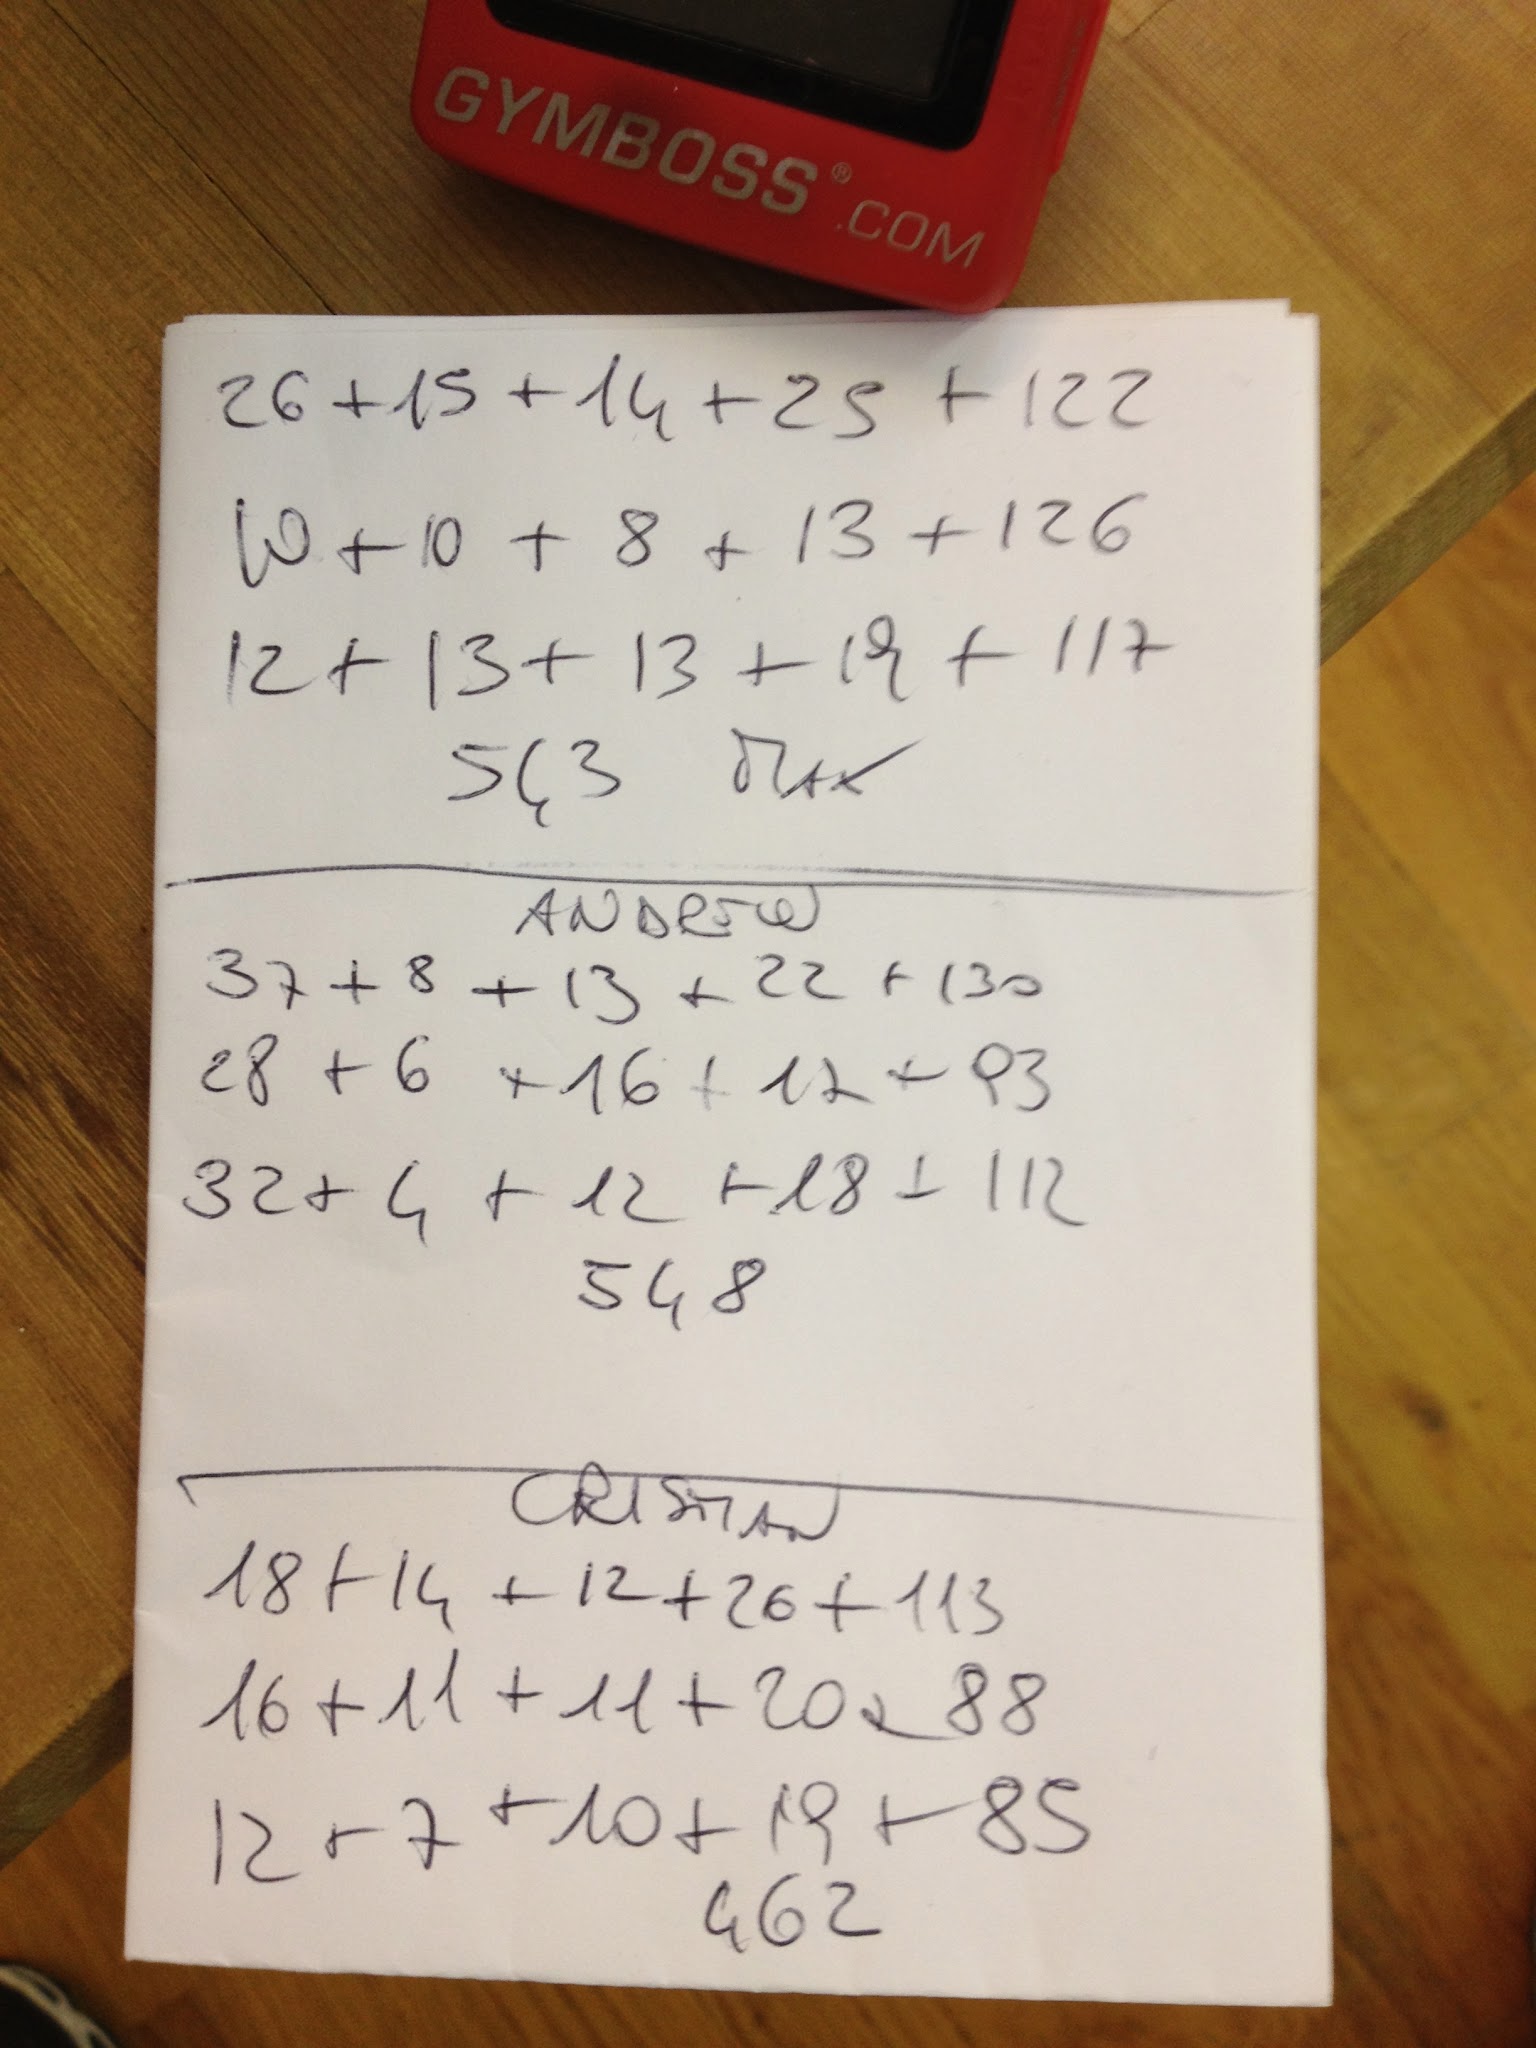 GYMBOSS® .COM
26 + 15 + 14 + 25 + 122
10 + 10 + 8 + 13 + 126
12 + 13 + 13 + 19 + 117
543 Max
ANDREW
37 + 8 + 13 + 22 + 130
28 + 6 + 16 + 17 + 93
32 + 4 + 12 + 18 + 112
548
CRISTIAN
18 + 14 + 12 + 26 + 113
16 + 11 + 11 + 20 + 88
12 + 7 + 10 + 19 + 85
462